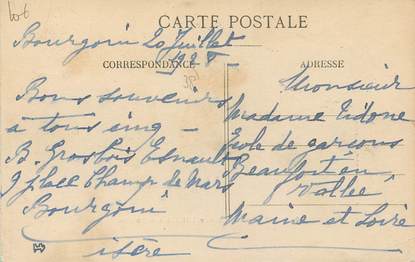 CARTE POSTALE
Bourgoin 20 Juillet
1928
CORRESPONDANCE
Bons souvenirs
à tous cinq -
B. Grosbois Esnault
9 place Champ de Mars
Bourgoin
isère
ADRESSE
Monsieur
Madame
École de garçons
Beaufort en
Vallée
Maine et Loire